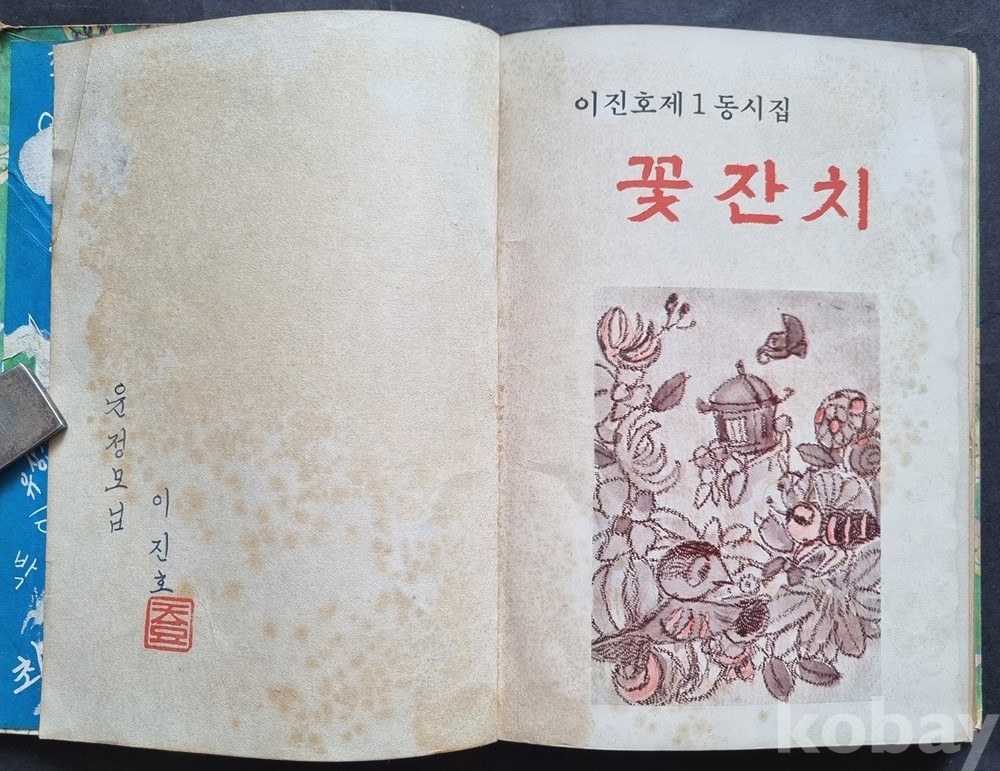 윤정모님
이진호
이진호제1동시집
꽃잔치
박
최
kobay